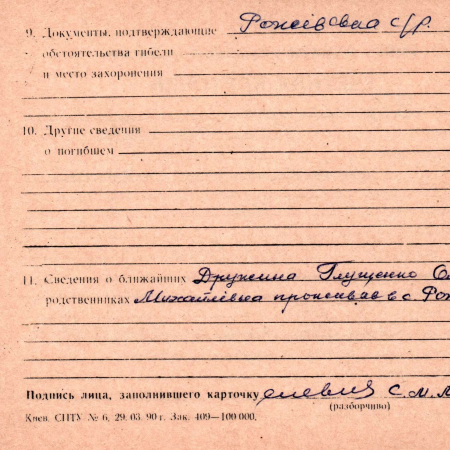 9. Документы, подтверждающие с/р.
обстоятельства гибели
и место захоронения
10. Другие сведения
о погибшем
11. Сведения о ближайших Дружина Глущенко
родственниках Михайлівна проживає в с.
Подпись лица, заполнившего карточку С. М.
(разборчиво)
Киев. СПТУ № 6, 29. 03. 90 г. Зак. 409—100 000.